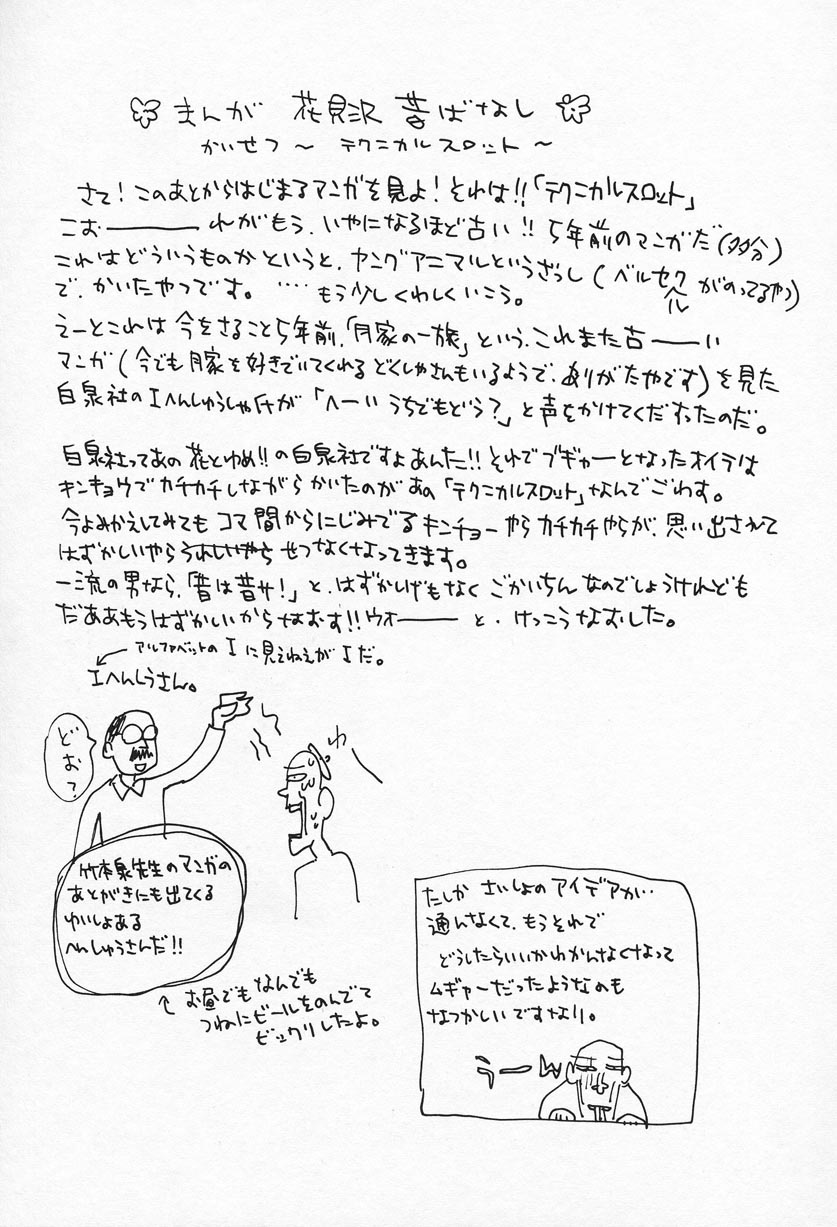 まんが 花見沢 昔ばなし
かいせつ〜 テクニカルスロット 〜
さて!このあとからはじまるマンガを見よ!それは!!「テクニカルスロット」
こおーーーれがもう、いやになるほど古い!!5年前のマンガだ(多分)
これはどういうものかというと、ヤングアニマルというざっし(ベルセルクがのってるやつ)
で、かいたやつです。‥‥もう少しくわしくいこう。
えーとこれは今をさること5年前、「月家の一族」という、これまた古ーーい
マンガ(今でも月家を好きでいてくれるどくしゃさんもいるようで、ありがたやです)を見た
白泉社のIへんしゅうしゃ氏が「へーいうちでもどう?」と声をかけてくだすったのだ。
白泉社ってあの花とゆめ!!の白泉社ですよあんた!!それでブギャーとなったオイラは
キンキョウでカチカチしながらかいたのがあの「テクニカルスロット」なんでごわす。
今よみかえしてみてもコマ間からにじみでるキンチョーやらカチカチやらが、思い出されて
はずかしいやらうれしいやらせつなくなってきます。
一流の男なら、「昔は昔サ!」と、はずかしげもなくごかいちんなのでしょうけれども
だああもうはずかしいからなおす!!ウオーーーと、けっこうなおしました。
アルファベットのIに見えねえがIだ。
Iへんしうさん。
どお?
わ
竹本泉先生のマンガの
あとがきにも出てくる
ゆいしょある
へんしゅうさんだ!!
お昼でもなんでも
つねにビールをのんでて
ビックリしたよ。
たしか さいしょのアイデアが‥
通んなくて、もうそれで
どうしたらいいかわかんなくなって
ムギャーだったようなのも
なつかしいですなり。
うーん